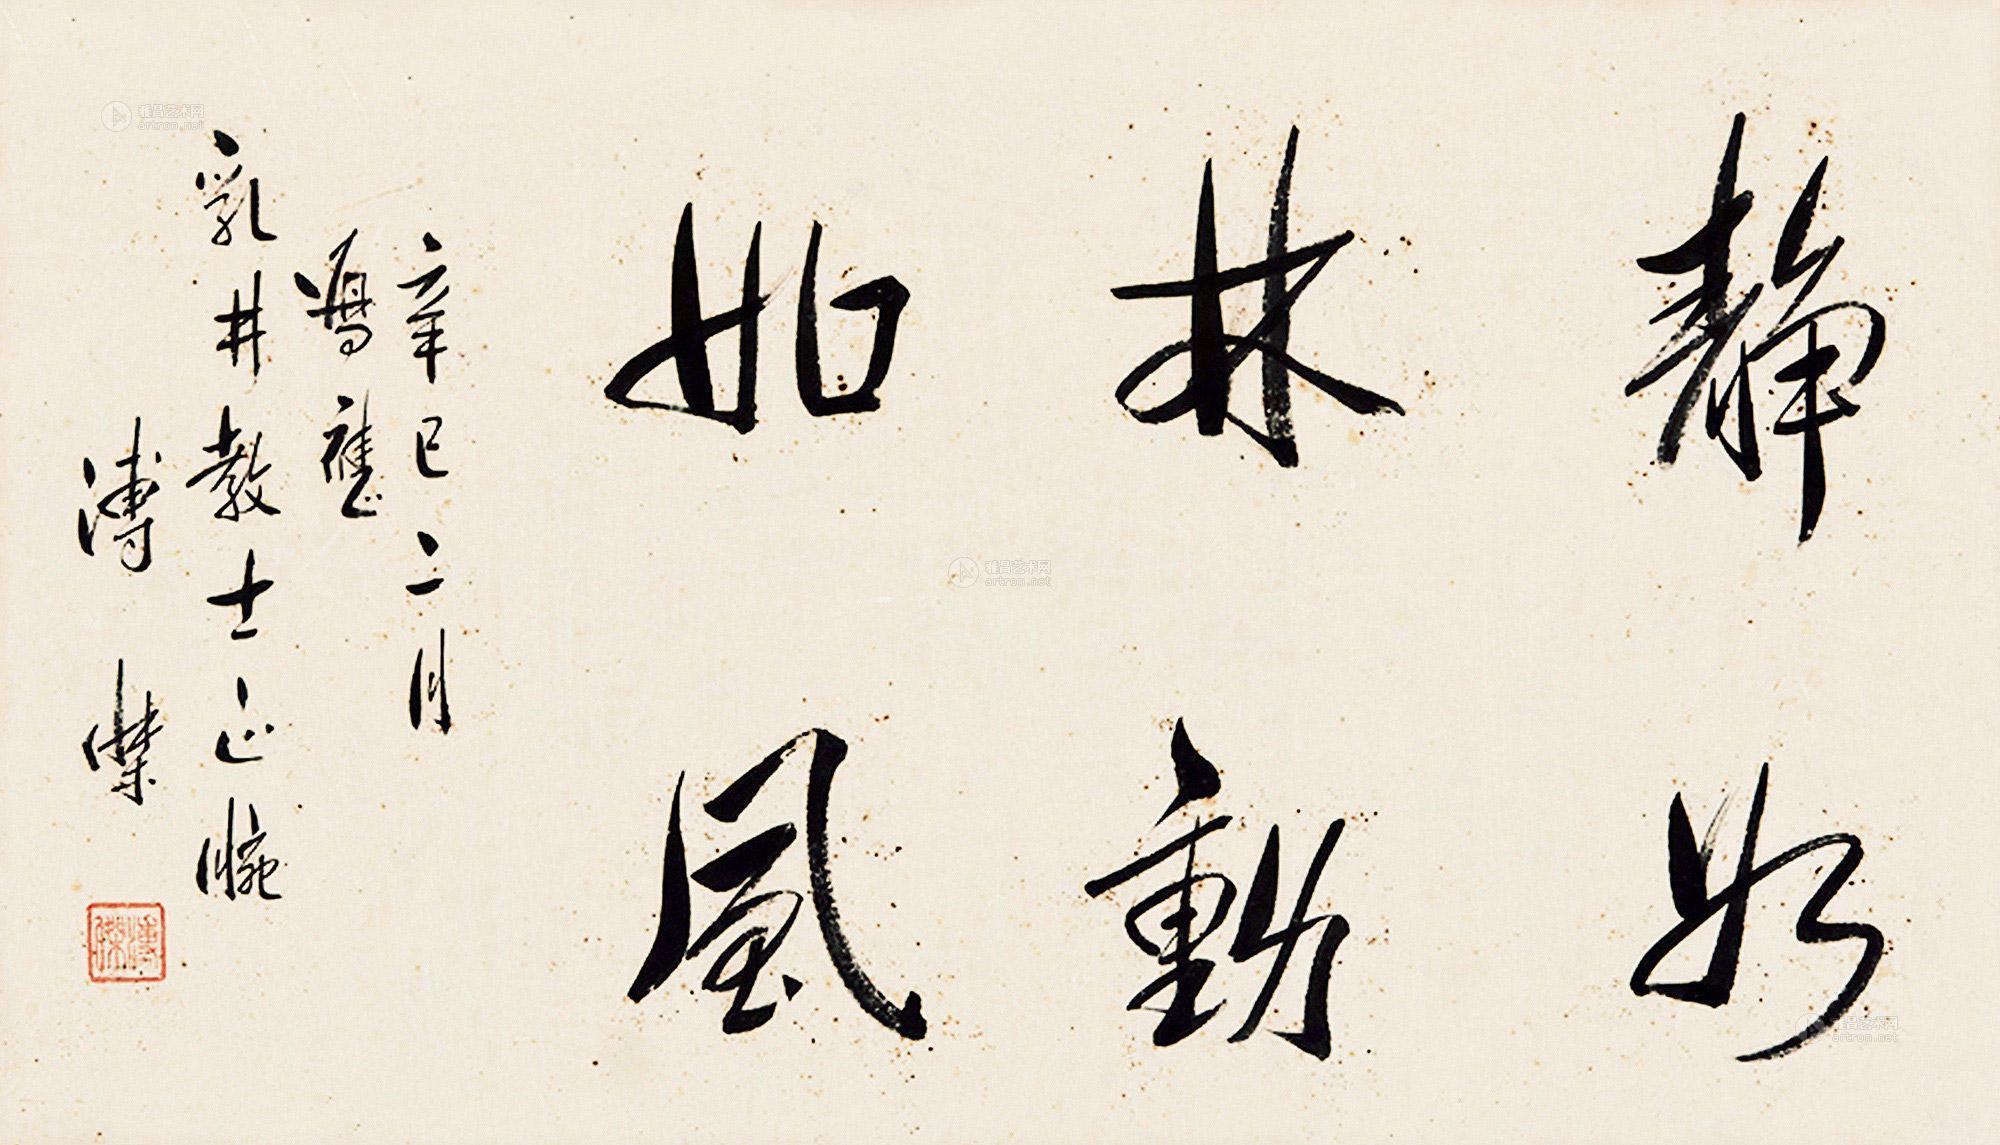 靜如
林動
如風
辛巳二月
為舊
乳井教士正腕
溥傑
溥傑
雅昌艺术网
artron.net
雅昌艺术网
artron.net
雅昌艺术网
artron.net